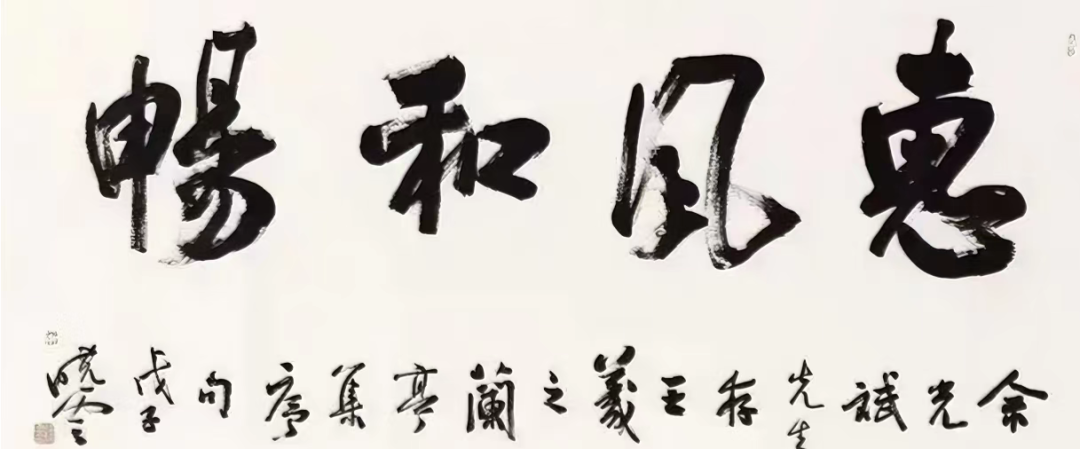 惠風和暢
余光先生存王羲之蘭亭集序句戊子曉雲